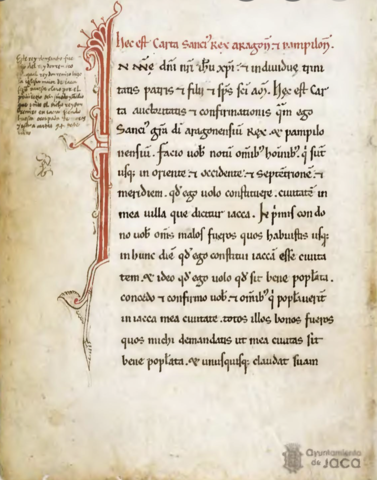 Hec est Carta Sanc̃ Rex aragoñ ⁊ pampiloñ.
N nñe dñi nr̃i ihũ xpĩ. ⁊ individue trini
tatis patris ⁊ filii ⁊ sp̃s sc̃i am̃. Hec est Car
ta auctoritatis ⁊ confirmationis qm̃ ego
Sancˀ gr̃a dĩ aragonensiũ Rex. & pampilo
nensiũ. Facio uob̃ notũ om̃ib' hoĩnib' q̃ sũt
usq; in oriente ⁊ occidente ⁊ Septentrione. ⁊
meridiem. qđ ego uolo constituere. ciuitatẽ in
mea uilla que dicitur iacca. In p̃mis con do
no uob̃ om̃s malos fueros quos habuistis usq;
in hunc diẽ qđ ego constitui iaccã esse ciuita
tem. & ideo qđ ego uolo qđ sit bene pop̃lata.
concedo ⁊ confirmo uob̃ ⁊ om̃ib' q̃ pop̃lauerĩt
in iacca mea ciuitate. totos illos bonos fueros
quos michi demandatis ut mea ciuitas sit
bene pop̃lata. & unusquisq; claudat suam
Ayuntamiento
de Jaca